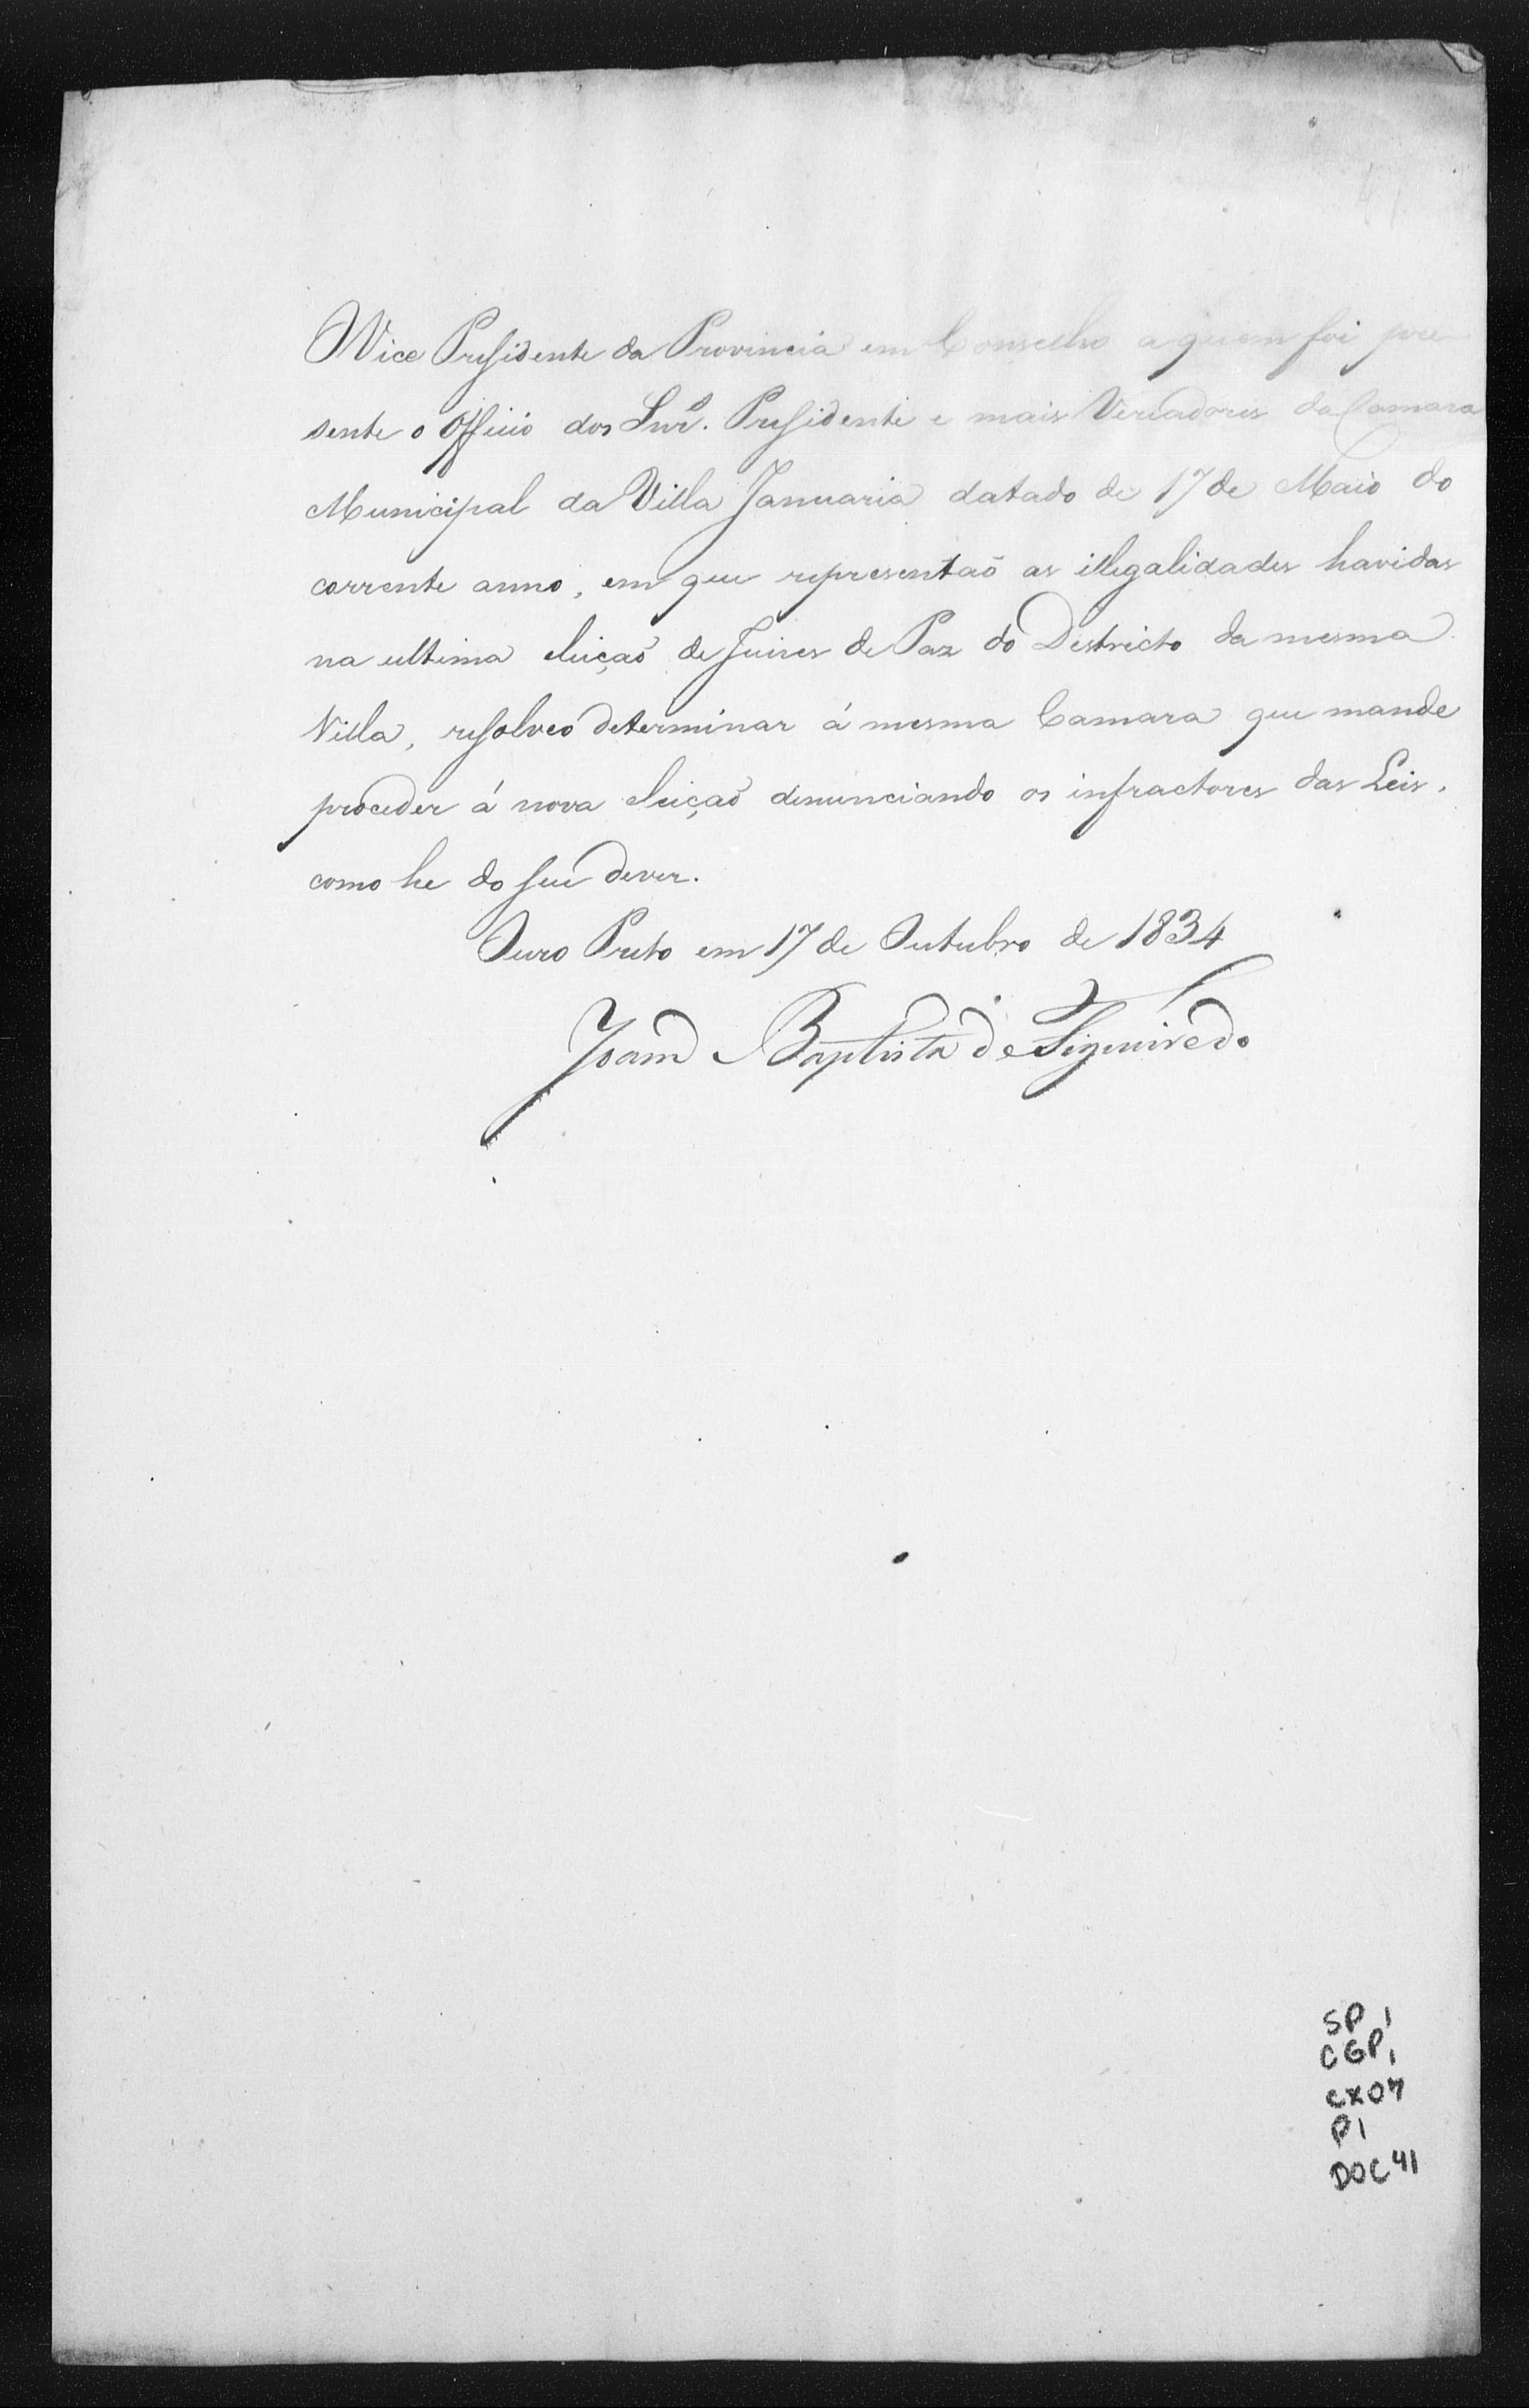 O Vice Presidente da Provincia em Conselho a quem foi pre
sente o Officio dos Snr.s Presidente e mais Vereadores da Camara
Municipal da Villa Januaria datado de 17 de Maio do
corrente anno, em que representaõ as illegalidades havidas
na ultima eleiçaõ de Juizes de Paz do Destricto da mesma
Villa, resolveo determinar á mesma Camara que mande
proceder á nova eleiçaõ denunciando os infractores das Leis,
como he do seu dever.
Ouro Preto em 17 de Outubro de 1834
Joam Baptista de Figueiredo
SP 1
CGP 1
CX07
P1
DOC 41